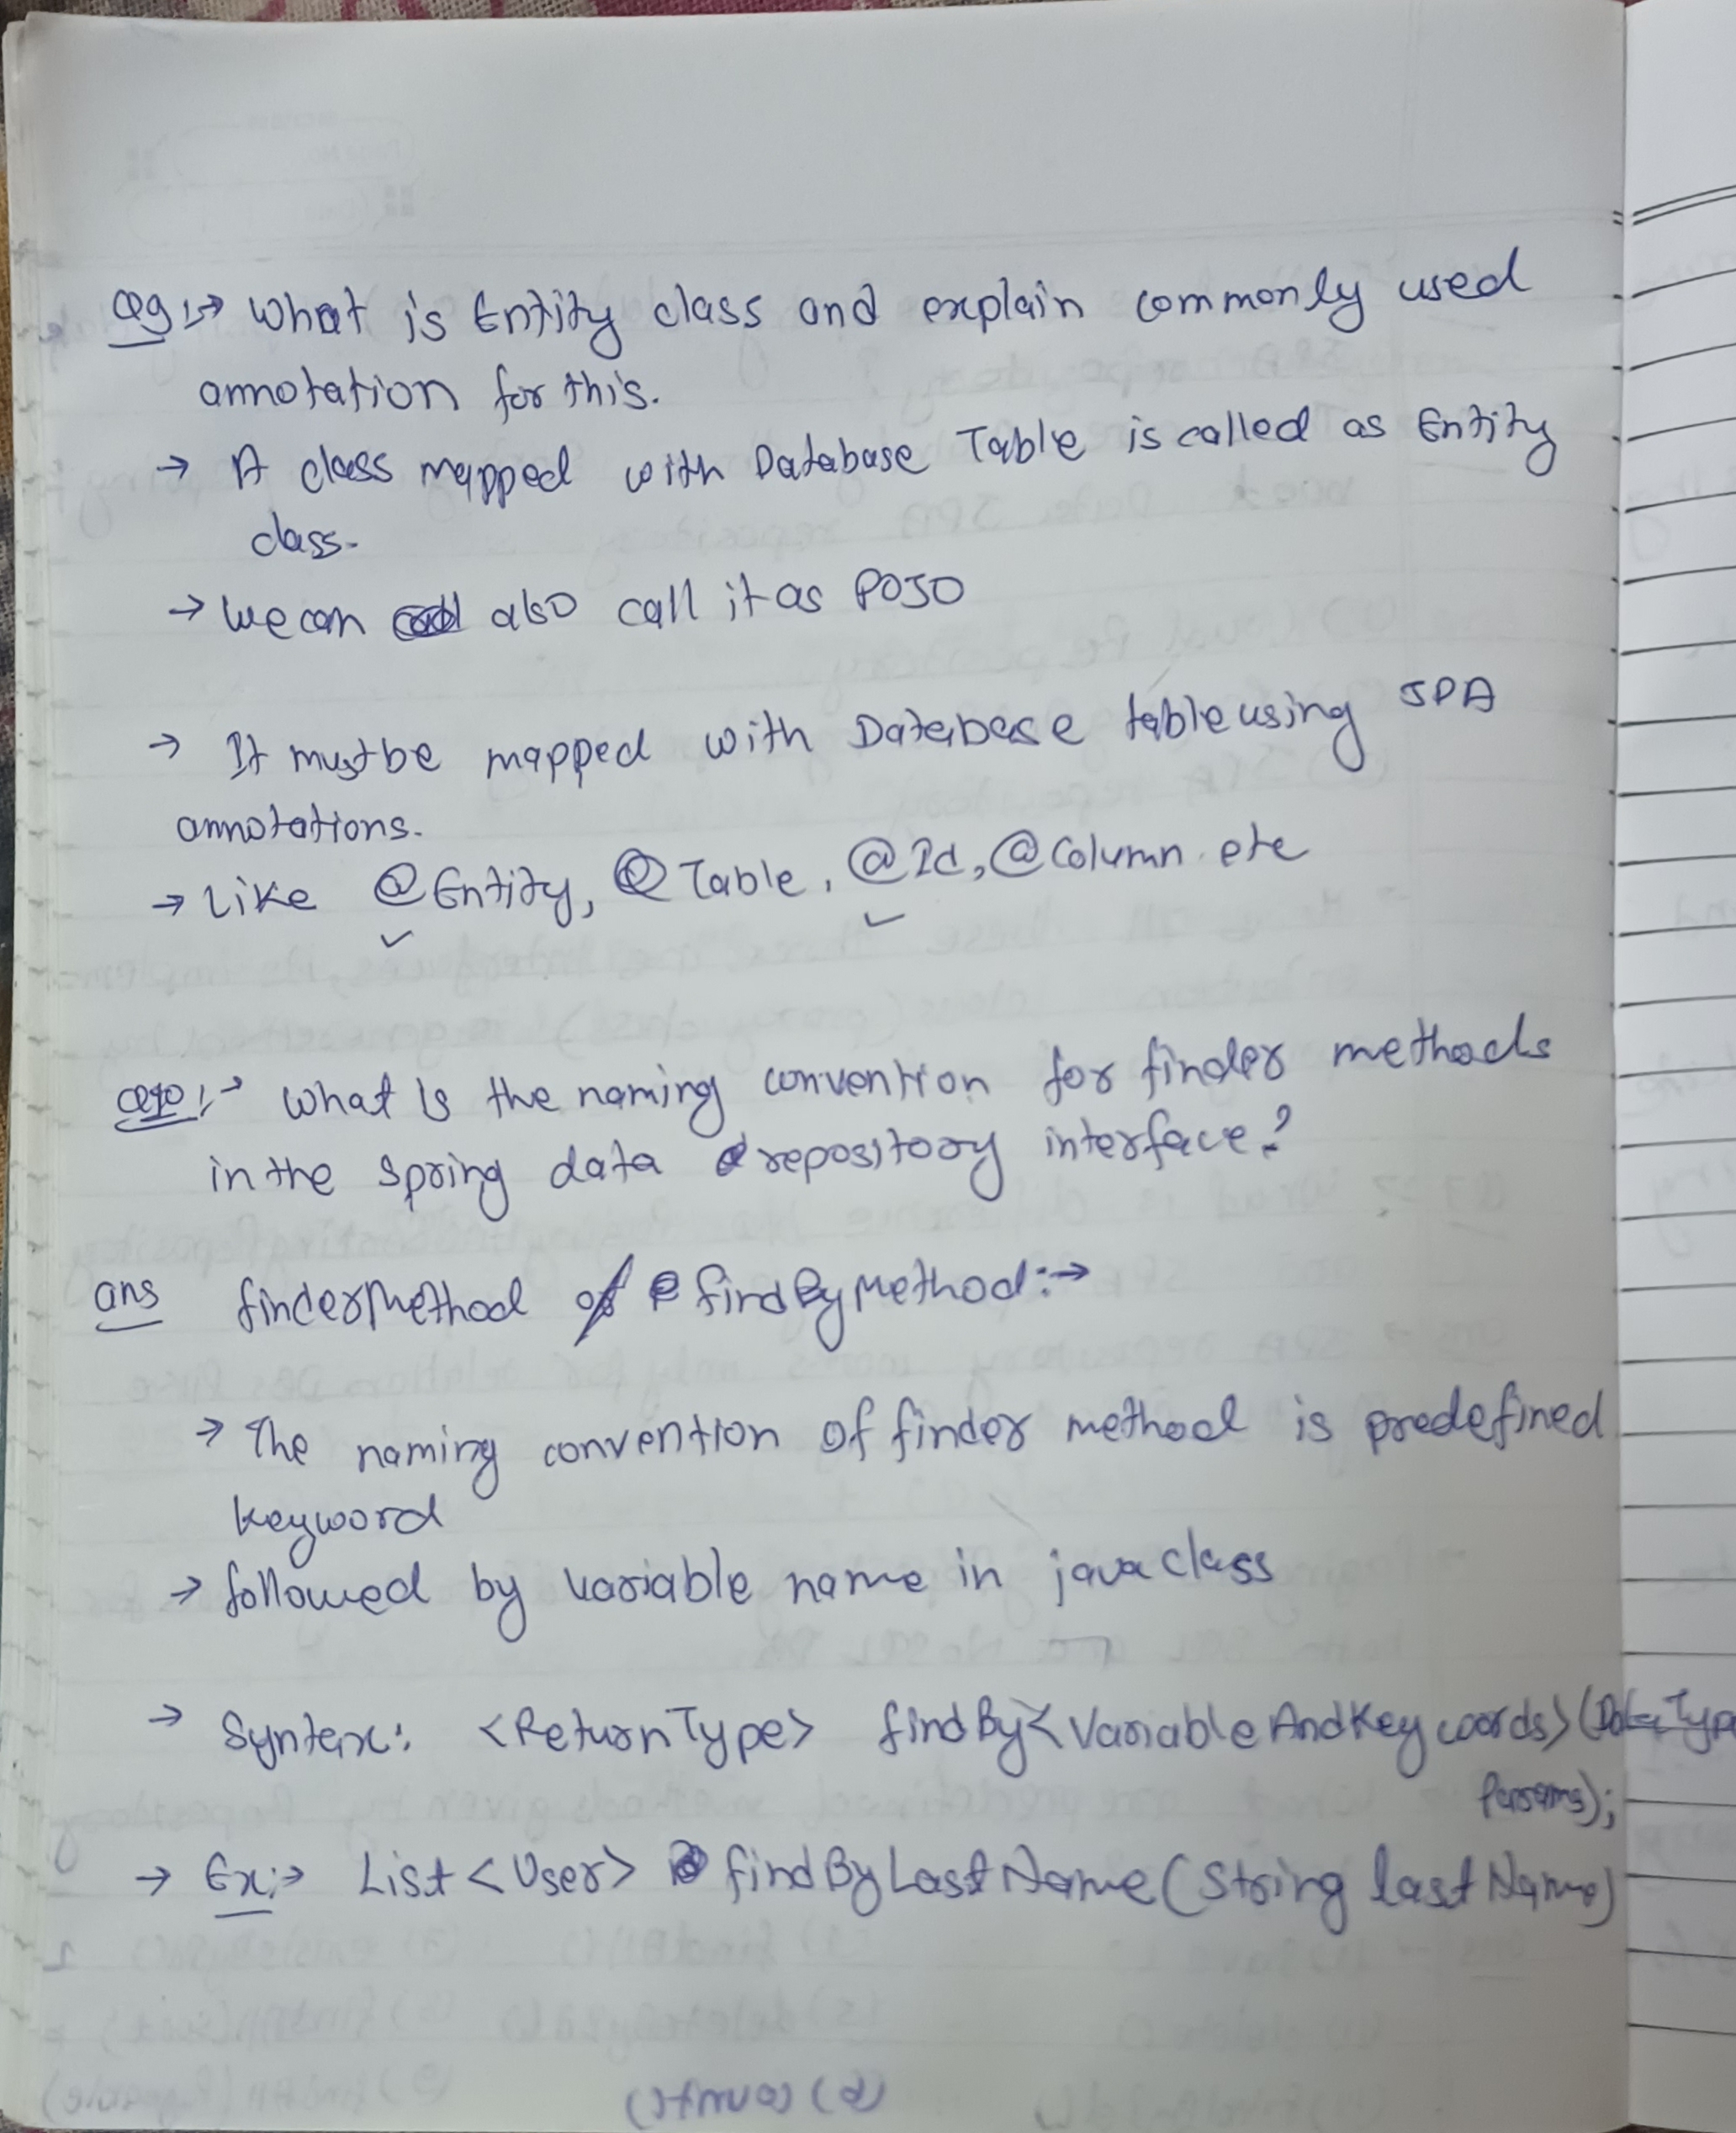 Q9:→ What is Entity class and explain commonly used
annotation for this.
→ A class mapped with Database Table is called as Entity
class.
→ We can also call it as POJO
→ It must be mapped with Database table using JPA
annotations.
→ Like @Entity, @Table, @Id, @Column. etc
Q10:→ What is the naming convention for finder methods
in the spring data repository interface?
ans finderMethod of findByMethod:→
→ The naming convention of finder method is predefined
keyword
→ followed by variable name in java class
→ Syntax: <ReturnType> findBy<VariableAndKeywords>(DataType
Params);
→ Ex:→ List<User> findByLastName(String lastName)